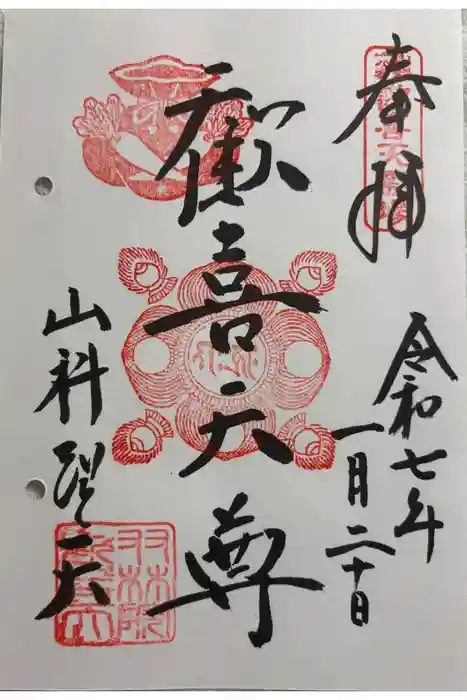 奉拝
令和七年
一月二十日
歓喜天尊
山科聖天
双林院